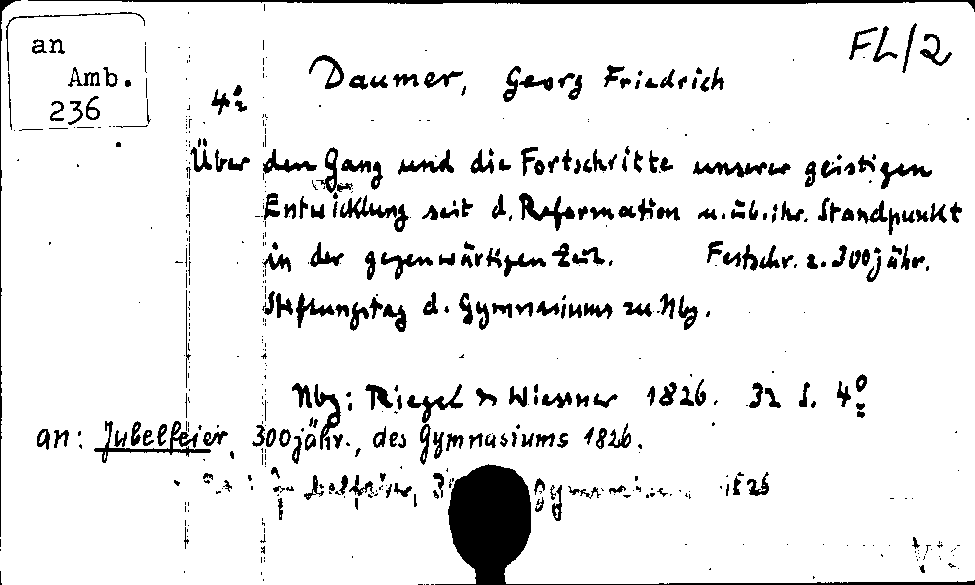 an
Amb.
236
4°
FL/2
Daumer, Georg Friedrich
Über den Gang und die Fortschritte unserer geistigen
Entwicklung seit d. Reformation u. üb. ihr. Standpunkt
in der gegenwärtigen Zeit. Festschr. z. 300jähr.
Stiftungstag d. Gymnasiums zu Nbg.
Nbg: Riegel & Wiessner 1826. 32 S. 4°
an: Jubelfeier, 300jähr., des Gymnasiums 1826.
1826